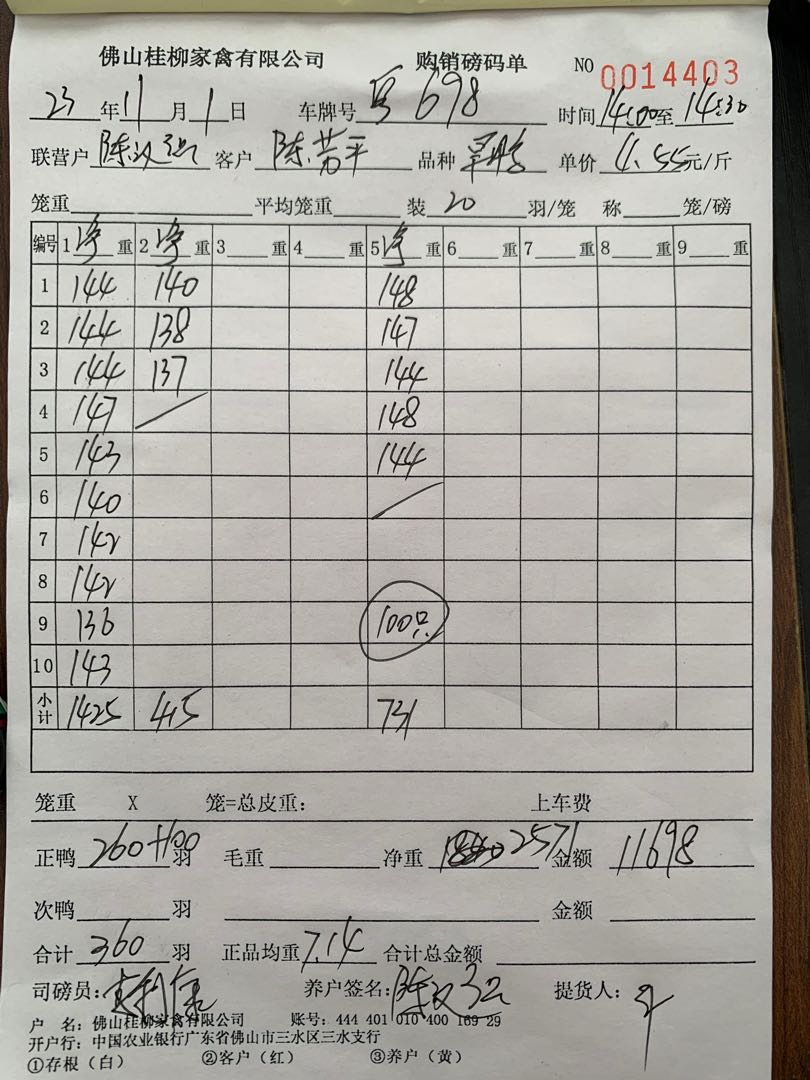 佛山桂柳家禽有限公司 购销磅码单 NO 0014403
23年11月1日 车牌号 698 时间14:00至14:30
联营户 陈汉 客户 陈芳平 品种 单价 4.55元/斤
笼重 平均笼重 装 20 羽/笼 称 笼/磅
编号 1净重 2净重 3 重 4 重 5净重 6 重 7 重 8 重 9 重
1 144 140 148
2 144 138 147
3 144 137 144
4 147 148
5 143 144
6 140
7 142
8 142
9 136 100只
10 143
小计 1425 415 731
笼重 X 笼=总皮重: 上车费
正鸭 260+100 羽 毛重 净重 2571 金额 11698
次鸭 羽 金额
合计 360 羽 正品均重 7.14 合计总金额
司磅员: 养户签名: 陈汉 提货人:
户 名: 佛山桂柳家禽有限公司 账号: 444 401 010 400 169 29
开户行: 中国农业银行广东省佛山市三水区三水支行
①存根(白) ②客户(红) ③养户(黄)